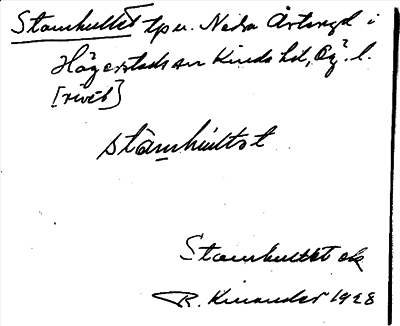 Stamhultet tp u. Nedre Årtengd i
Hägerstads sn Kinds hd, Ög. l.
[rivet]
stamhultət
Stamhultet ek
R. Kinander 1928